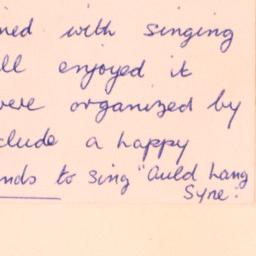 ned with singing
ll enjoyed it
were organized by
clude a happy
nds to sing "Auld Lang
Syne".